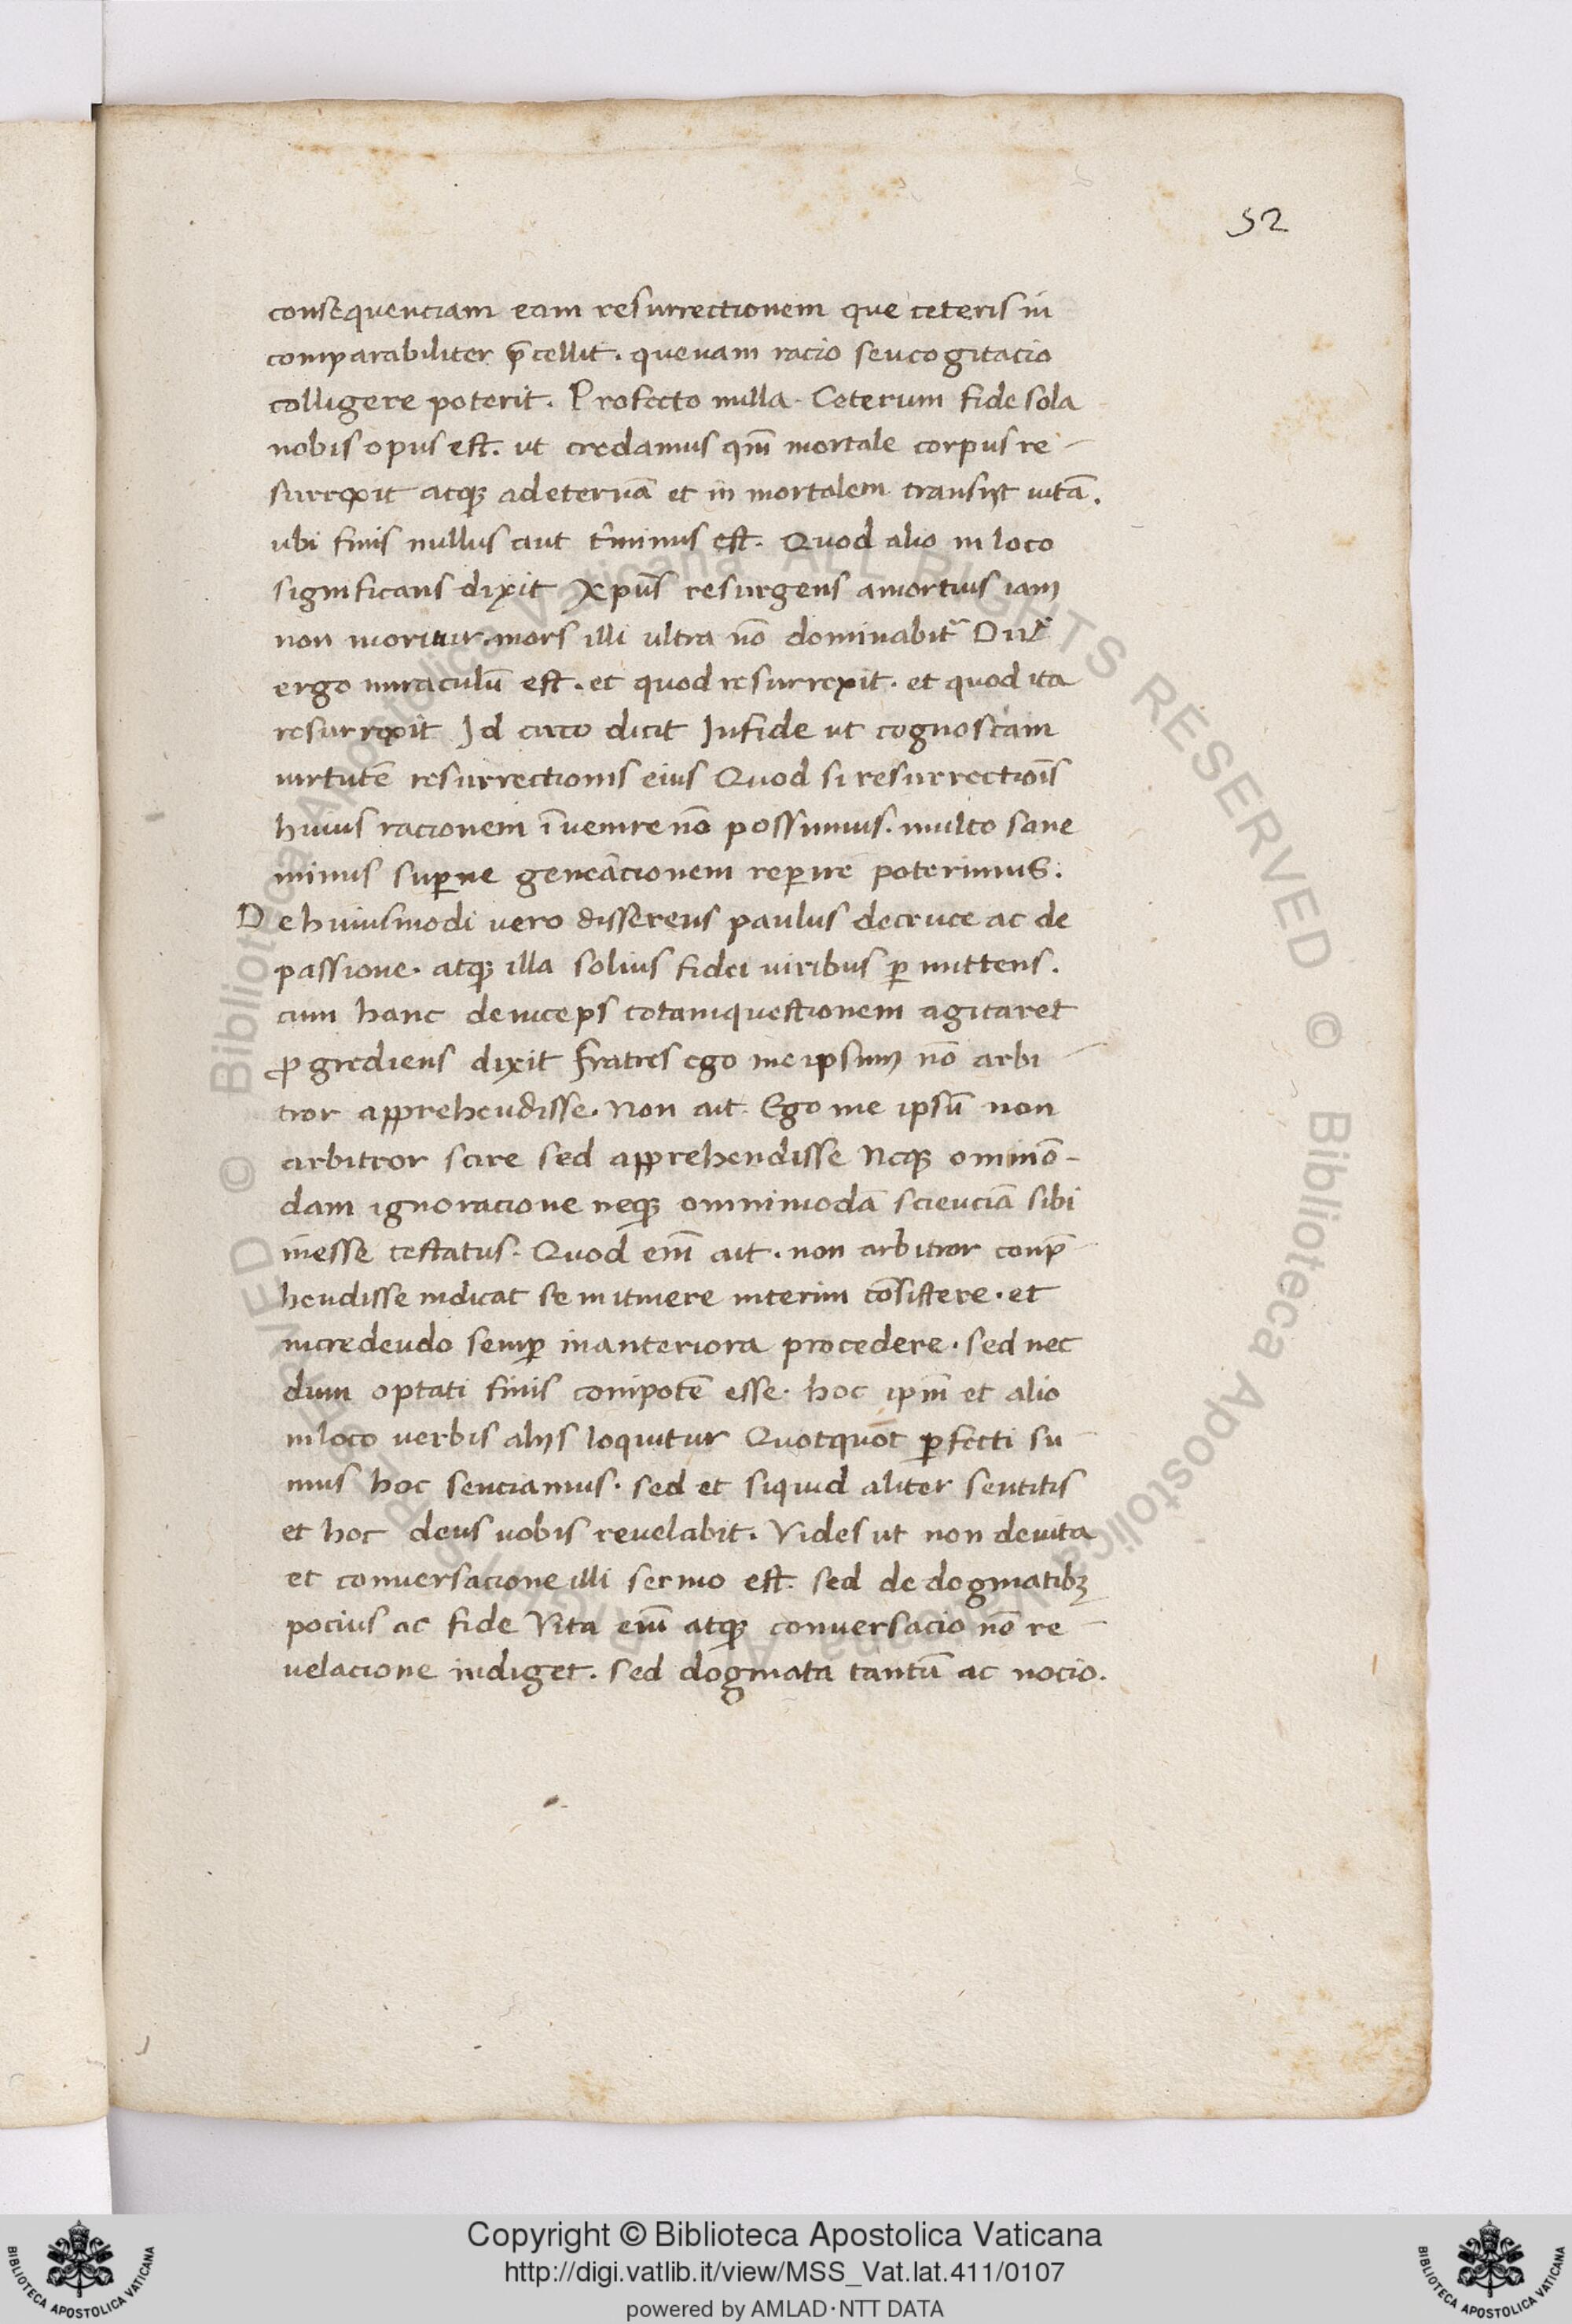 52
consequenciam eam resurrectionem que ceteris in
comparabiliter p̄cellit. quenam racio seu cogitacio
colligere poterit. Profecto nulla. Ceterum fide sola
nobis opus est. ut credamus qm̄ mortale corpus re-
surrexit atqꝫ ad eternā et in mortalem transijt uitā.
ubi finis nullus aut t̄minus est. Quod alio in loco
significans dixit Xpūs resurgens a mortuis iam
non moritur. mors illi ultra nō dominabit᷑
ergo miraculū est. et quod resurrexit. et quod ita
resurrexit Id circo dicit In fide ut cognoscam
uirtutē resurrectionis eius Quod si resurrectiōis
huius racionem īuenire nō possumus. multo sane
minus suꝑne gen̄eacionem reꝑirē poterimus.
De huiusmodi vero disserens paulus de cruce ac de
passione. atqꝫ illa solius fidei uiribus ꝑmittens.
cum hanc deinceps totam questionem agitaret
ꝓgrediens dixit fratres ego me ipsum nō arbi-
tror apprehendisse. Non ait. Ego me ipsū non
arbitror scire sed apprehendisse Neqꝫ omimō-
dam ignoracione neqꝫ omnimodā scienciā sibi
inesse testatus. Quod enī ait. non arbitror conp̄-
hendisse indicat se in itinere interim cōsistere. et
incredendo semꝑ in anteriora procedere. sed nec
dum optati finis compotē esse. hoc ipm̄ et alio
in loco verbis alijs loquitur Quotquot ꝑfecti su-
mus hoc senciamus. sed et siquid aliter sentitis
et hoc deus uobis reuelabit. Vides ut non de uita
et conuersacione illi sermo est. sed de dogmatibꝫ
pocius ac fide Vita enī atqꝫ conuersacio nō re-
uelacione indiget. sed dogmata tantū ac nocio.
© Biblioteca Apostolica Vaticana ALL RIGHTS RESERVED © Biblioteca Apostolica Vaticana ALL RIGHTS RESERVED
Copyright © Biblioteca Apostolica Vaticana
http://digi.vatlib.it/view/MSS_Vat.lat.411/0107
powered by AMLAD·NTT DATA
BIBLIOTECA APOSTOLICA VATICANA
BIBLIOTECA APOSTOLICA VATICANA